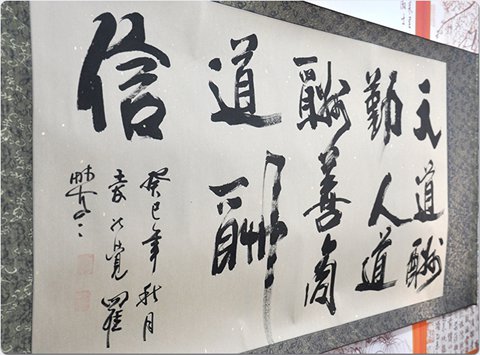 天道酬
勤人道
酬善商
道酬
信
癸巳年秋月
爱新覺羅